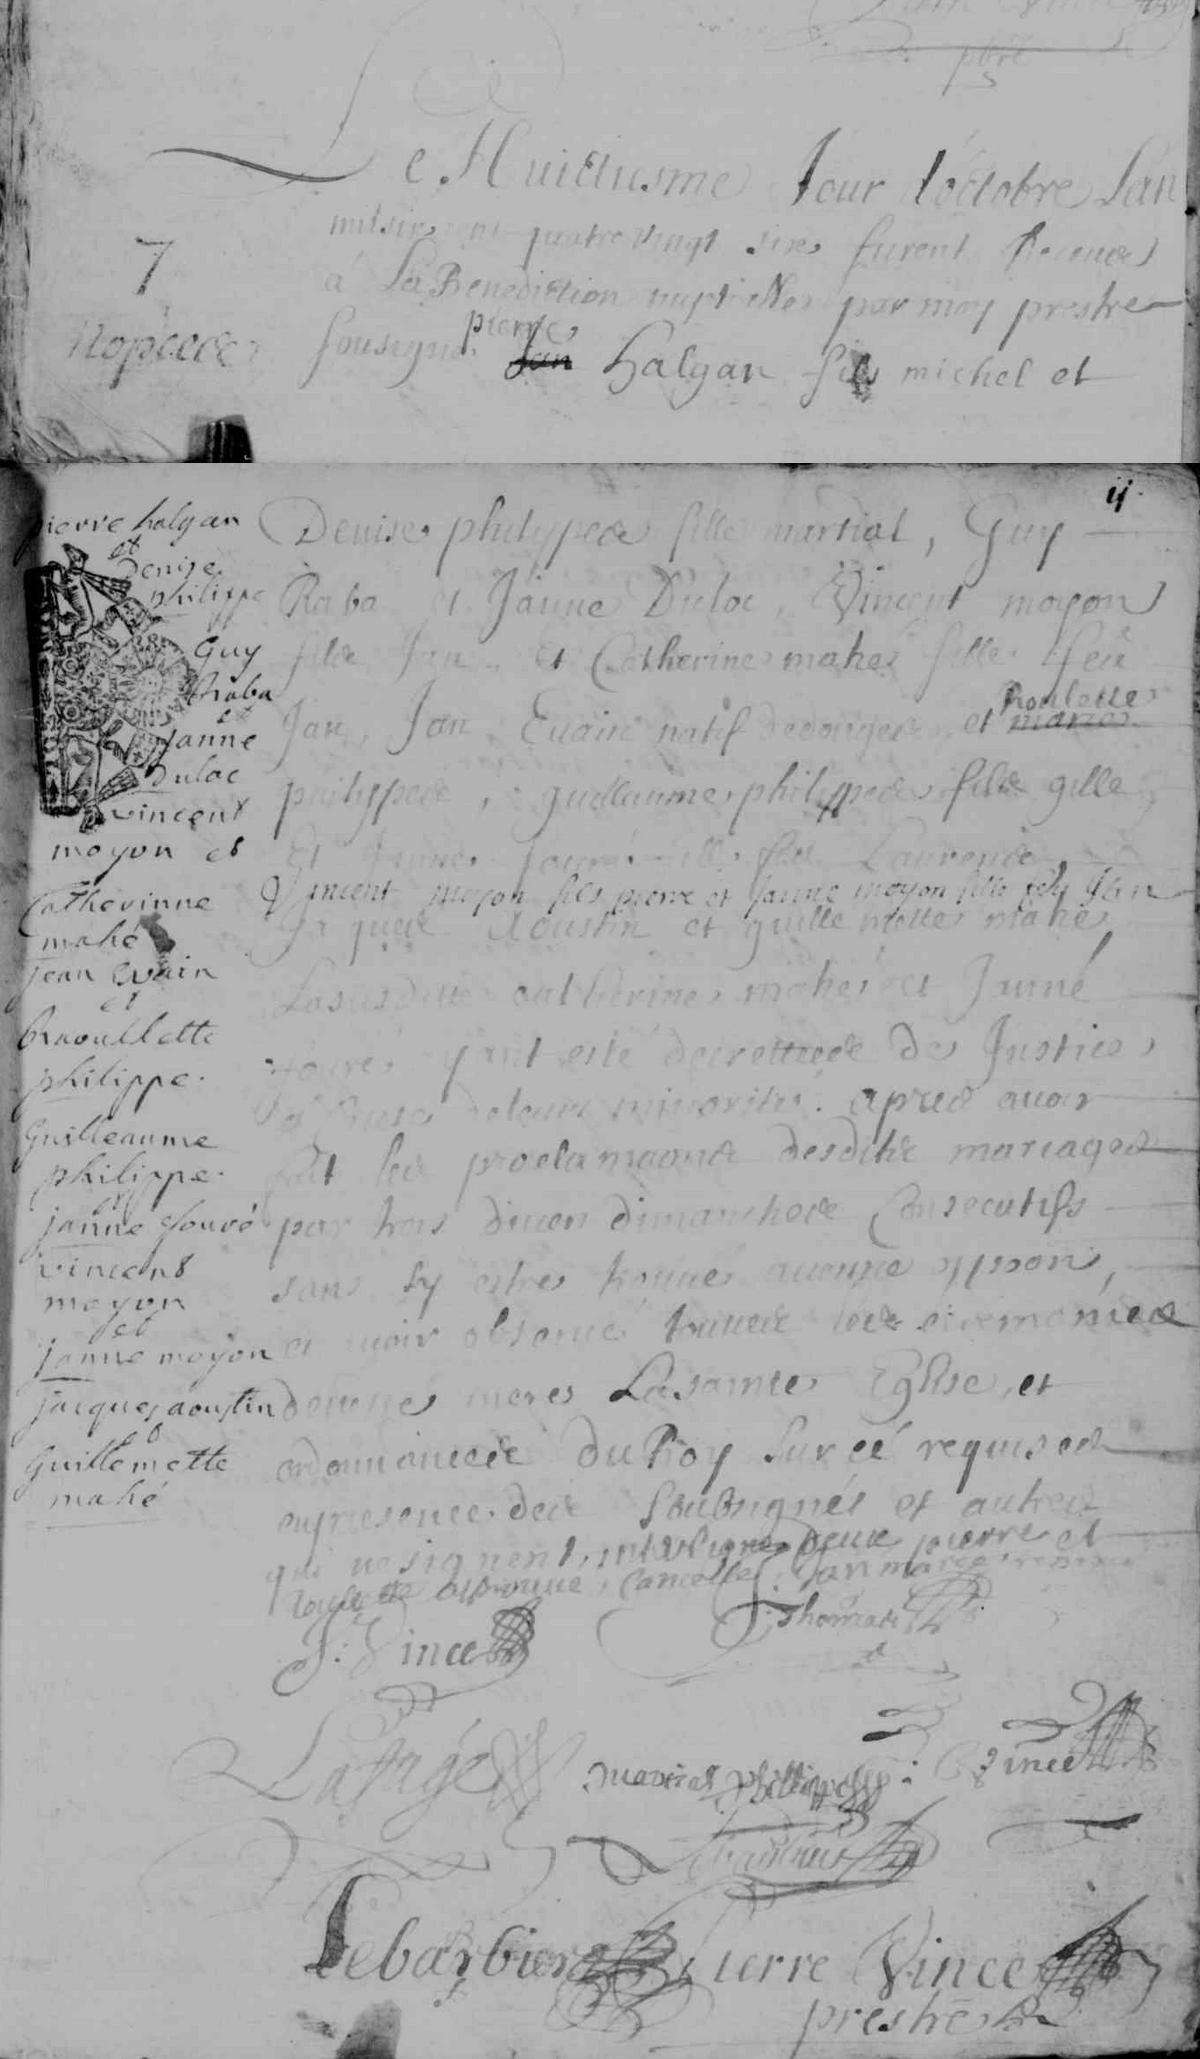 pbre
Le Huictiesme Jour d'octobre Lan
7
nopcede
mil six quatre vingt six furent Receues
a La Benediction nuptielle par moy prestre
sousigné pierre Jan halgan fils michel et
ij
pierre halgan
et
denise
philippe
Guy
Raba
et
janne
dulac
vincent
moyon et
Catherinne
mahé
jean evain
et
Raoullette
philippe.
Guilleaume
philippe.
et
janne Jouré
vincent
moyon
et
janne moyon
jacques aoustin
et
Guillemette
mahé
Denise philyppes fille martial, Guy
Raba et Janne Duloc, Vincent moyon
fils Jan, et Catherine mahe fille feu
Jan, Jan Evain natif et Roulette marie
philyppes, guillaume philyppes fils gille
et Janne Jouré fille feu Laurence
Vincent moyon fils pierre et Janne moyon fille feu Jan
Jaques Aoustin et guillemette mahe,
Lasusditte catherine mahé et Janne
Jouré ayant esté decrettees de Justice
a cause de leurs minorites. apres avoir
fait les proclamaons desdits mariages
par trois divers dimanches Consecutifs
sans sy estre trouvé aucune opposon,
et avoir observé touttes les ceremonies
de notre mere La sainte Eglise, et
ordonnances du Roy sur cé requises
en presence des soubsignés et autres
qui ne signent, interligne deux pierre et
roulette approuvé, Cancellé Jan marie
J: Vince
Thomas
Lafargé
marcial phelippes
Vince
Lebarbier
Pierre Vince
prestre